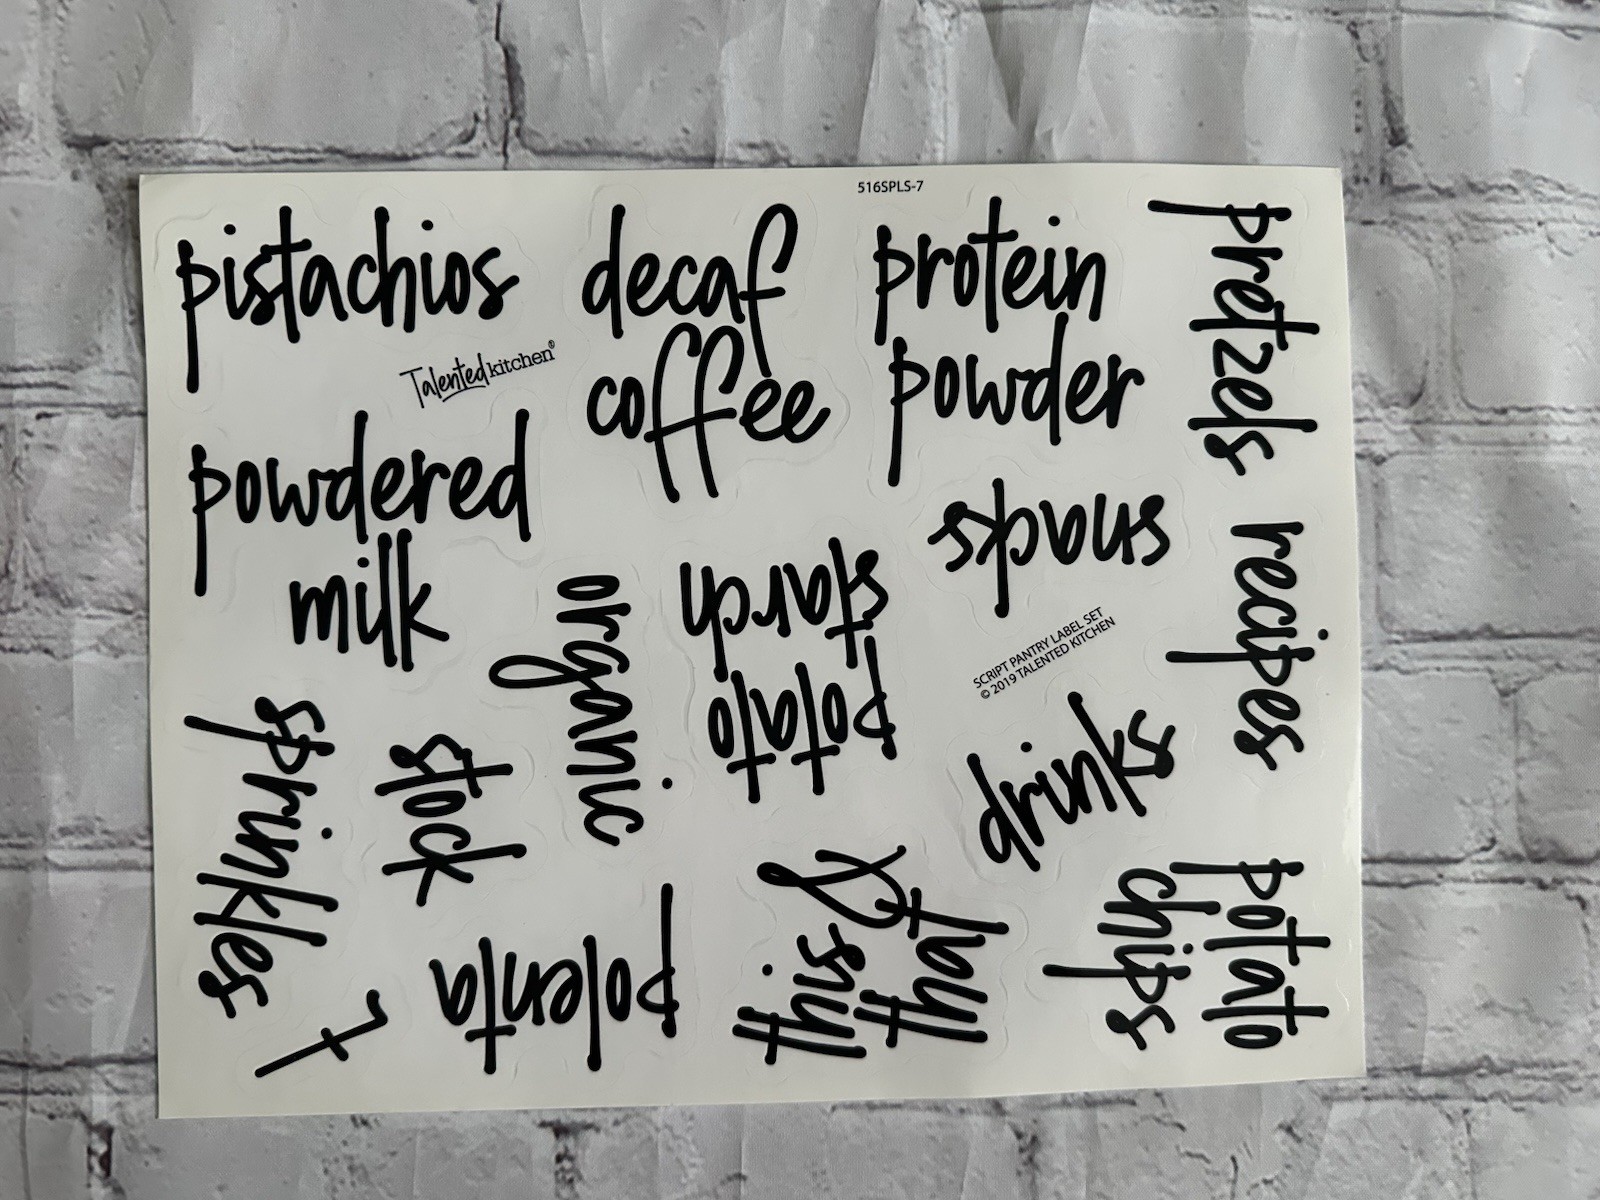 516SPLS-7
pistachios
decaf
coffee
protein
powder
pretzels
Talentedkitchen®
powdered
milk
snacks
recipes
organic
potato
starch
SCRIPT PANTRY LABEL SET
© 2019 TALENTED KITCHEN
sprinkles
stock
drinks
polenta
this &
that
potato
chips
7